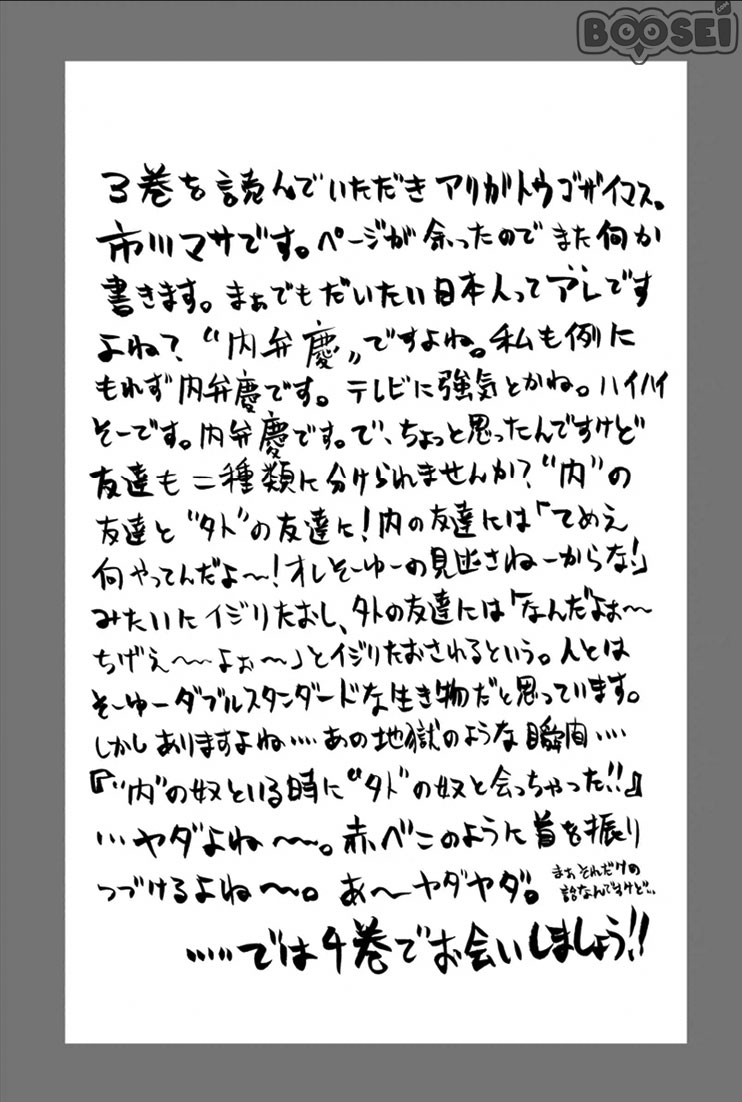 BOOSEI
.com
3巻を読んでいただきアリガトウゴザイマス。
市川マサです。ページが余ったのでまた何か
書きます。まぁでもだいたい日本人ってアレです
よね?“内弁慶〟ですよね。私も例に
もれず内弁慶です。テレビに強気とかね。ハイハイ
そーです。内弁慶です。で、ちょっと思ったんですけど
友達も二種類に分けられませんか?“内”の
友達と“外”の友達に!内の友達には「てめえ
何やってんだよ〜!オレそーゆーの見逃さねーからな!」
みたいにイジりたおし、外の友達には「なんだよぉ〜
ちげぇ〜〜よぉ〜」とイジりたおされるという。人とは
そーゆーダブルスタンダードな生き物だと思っています。
しかしありますよね‥‥あの地獄のような瞬間‥‥
『“内”の奴といる時に“外”の奴と会っちゃった!!』
…ヤダよね〜〜。赤べこのように首を振り
つづけるよね〜〜。あ〜ヤダヤダ。
まぁそれだけの
話なんですけど…
……では4巻でお会いしましょう!!